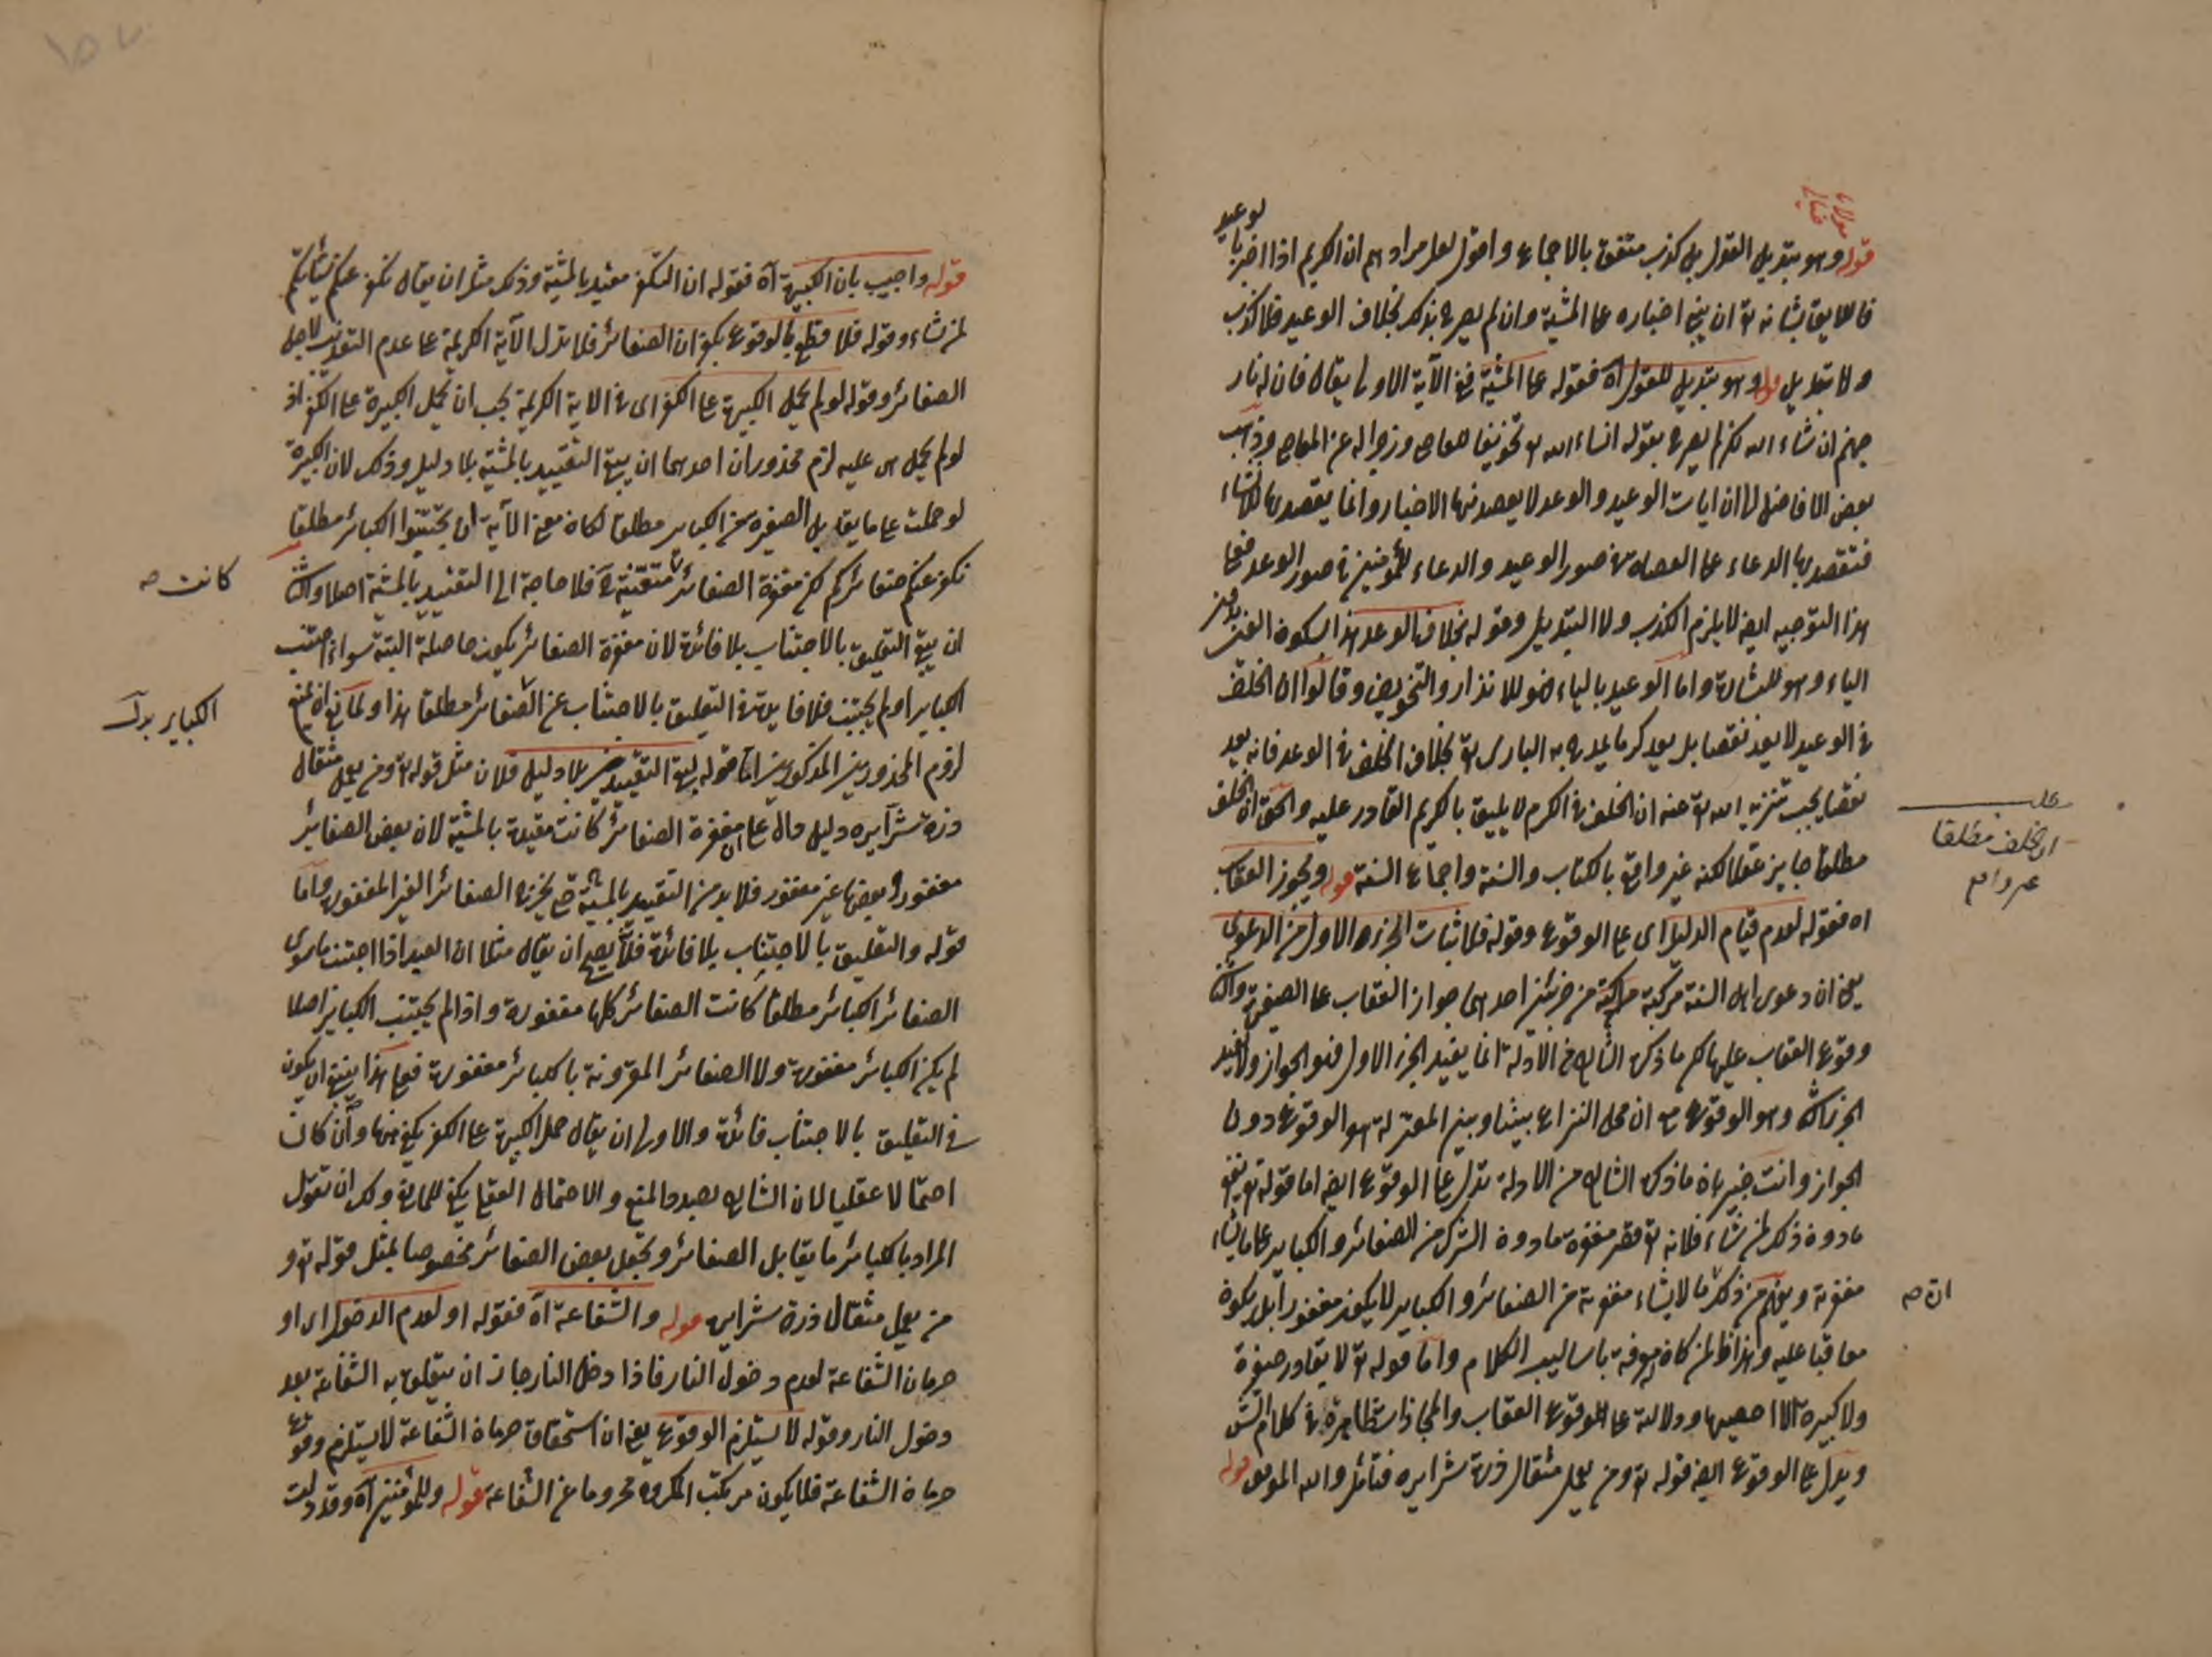 مولانا
خيالى
قوله وهو تبديل القول بل كذب متفق بالاجماع واقول لعل مرادهم ان الكريم اذا اخبر بالوعيد
فاللايق بشانه تع ان يبنى اخباره على المشية وان لم يصرح بذلك بخلاف الوعيد فلا كذب
ولا تبديل قوله وهو تبديل للقول اه فقوله على المشية فى الآية الاولى يقال فان له نار
جهنم ان شاء الله لكن لم يصرح بقوله ان شاء الله تع تخويفا للعاصى وزجرا له عن المعاصى وذهب
بعض الافاضل الى ان ايات الوعيد والوعد لا يقصد منها الاخبار وانما يقصد بها الانشاء
فتقصد بها الدعاء على العصاة فى صور الوعيد والدعاء للمؤمنين فى صور الوعد فعلى
هذا التوجيه ايض لا يلزم الكذب ولا التبديل وقوله بخلاف الوعد هذا بسكون العين بدون
الياء وهو للبشارة واما الوعيد بالياء فهو للانذار والتخويف وقالوا ان الخلف
فى الوعيد لا يعد نقصا بل يعد كرما يمدح به البارى تع بخلاف الخلف فى الوعد فانه يعد
نقصا يجب تنزيه الله تع عنه ان الخلف فى الكرم لا يليق بالكريم القادر عليه والحق ان الخلف
مطلقا جايز عقلا لكنه غير واقع بالكتاب والسنة واجماع السنة قوله ويجوز العقاب
اه فقوله لعدم قيام الدليل اى على الوقوع وقوله فلاثبات الجزء الاول من الدعوى
يعنى ان دعوى اهل السنة مركبة من جزئين احدهما جواز العقاب على الصغيرة والثانى
وقوع العقاب عليها لكن ما ذكره الشارح من الادلة انما يفيد الجزء الاول فهو الجواز ولا يفيد
الجزء الثانى وهو الوقوع مع ان محل النزاع بيننا وبين المعتزلة هو الوقوع دون
الجواز وانت خبير بان ما ذكره الشارح من الادلة تدل على الوقوع ايض اما قوله تع يغفر
ما دون ذلك لمن يشاء فلانه تع قصر مغفرة ما دون الشرك من الصغائر والكباير على ما يشاء
مغفرته ويفهم من ذلك ما لا يشاء مغفرته من الصغائر والكباير لا يكون مغفورا بل يكون
معاقبا عليه وهذا ظ لمن كان له معرفة باساليب الكلام واما قوله تع لا يغادر صغيرة
ولا كبيرة الا احصيها ودلالته على الوقوع العقاب والمجازات ظاهرة فى كلام الش
ويدل على الوقوع ايض قوله تع ومن يعمل مثقال ذرة شرا يره فتأمل والله الموفق قوله
ان الخلف مطلقا
ان صح
قوله واجيب بان الكبيرة آه فقوله ان التكفير مقيد بالمشية وذكر مثل ان يقال نكفر عنكم سيئاتكم
لمن نشاء وقوله فلا قطع بالوقوع بكفران الصغائر فلا تدل الآية الكريمة على عدم التعذيب لاجل
الصغائر وقوله لو لم يحمل الكبيرة على الكفر اى فى الاية الكريمة يجب ان يحمل الكبيرة على الكفر اذ
لو لم يحمل عليه لزم محذوران احدهما ان يبقى التقييد بالمشية بلا دليل وذلك لان الكبيرة
لو حملت على ما يقابل الصغيرة من الكباير مطلقا لكان معنى الآية ان تجتنبوا الكبائر مطلقا
نكفر عنكم صغائركم لكن مغفرة الصغائر متيقنة فلا حاجة الى التقييد بالمشية اصلا والثانى
ان يبقى التعليق بالاجتناب بلا فائدة لان مغفرة الصغائر يكون حاصلة البتة سواء اجتنب
الكباير او لم يجتنب فلا فايدة فى التعليق بالاجتناب عن الصغائر مطلقا هذا ولمانع ان يمنع
لزوم المحذورين المذكورين اما قوله بقى التقييد بلا دليل فلان مثل قوله تع ومن يعمل مثقال
ذرة شرا يره دليل دال على ان مغفرة الصغائر كانت مقيدة بالمشية لان بعض الصغائر
مغفور وبعضها غير مغفور فلا بد من التقييد بالمشية حتى يخرج الصغائر الغير المغفورة واما
قوله والتعليق بالاجتناب بلا فائدة فلا يصح ان يقال مثلا ان العبد اذا اجتنب ما سوى
الصغائر الكبائر مطلقا كانت الصغائر كلها مغفورة واذا لم يجتنب الكبائر اصلا
لم يكن الكبائر مغفورة ولا الصغائر المقرونة بالكبائر مغفورة فعلى هذا ينبغى ان يكون
فى التعليق بالاجتناب فائدة والاولى ان يقال حمل الكبيرة على الكفر يكفى هنا وان كان
احتمالا عقليا لان الشارح بصدد المنع والاحتمال العقلى يكفى للمانع ولك ان تقول
المراد بالكبائر ما يقابل الصغائر ويجعل بعض الصغائر مخصوصا بمثل قوله تع و
من يعمل مثقال ذرة شرا يره قوله والشفاعة آه فقوله او لعدم الدخول اى او
حرمان الشفاعة لعدم دخول النار فاذا دخل النار جاز ان يتعلق به الشفاعة بعد
دخول النار وقوله لا يستلزم الوقوع يعنى ان استحقاق حرمان الشفاعة لا يستلزم وقوع
حرمان الشفاعة فلا يكون مرتكب المكروه محروما عن الشفاعة قوله وللمؤمنين آه وقد دلت
كانت صح
الكباير بدل